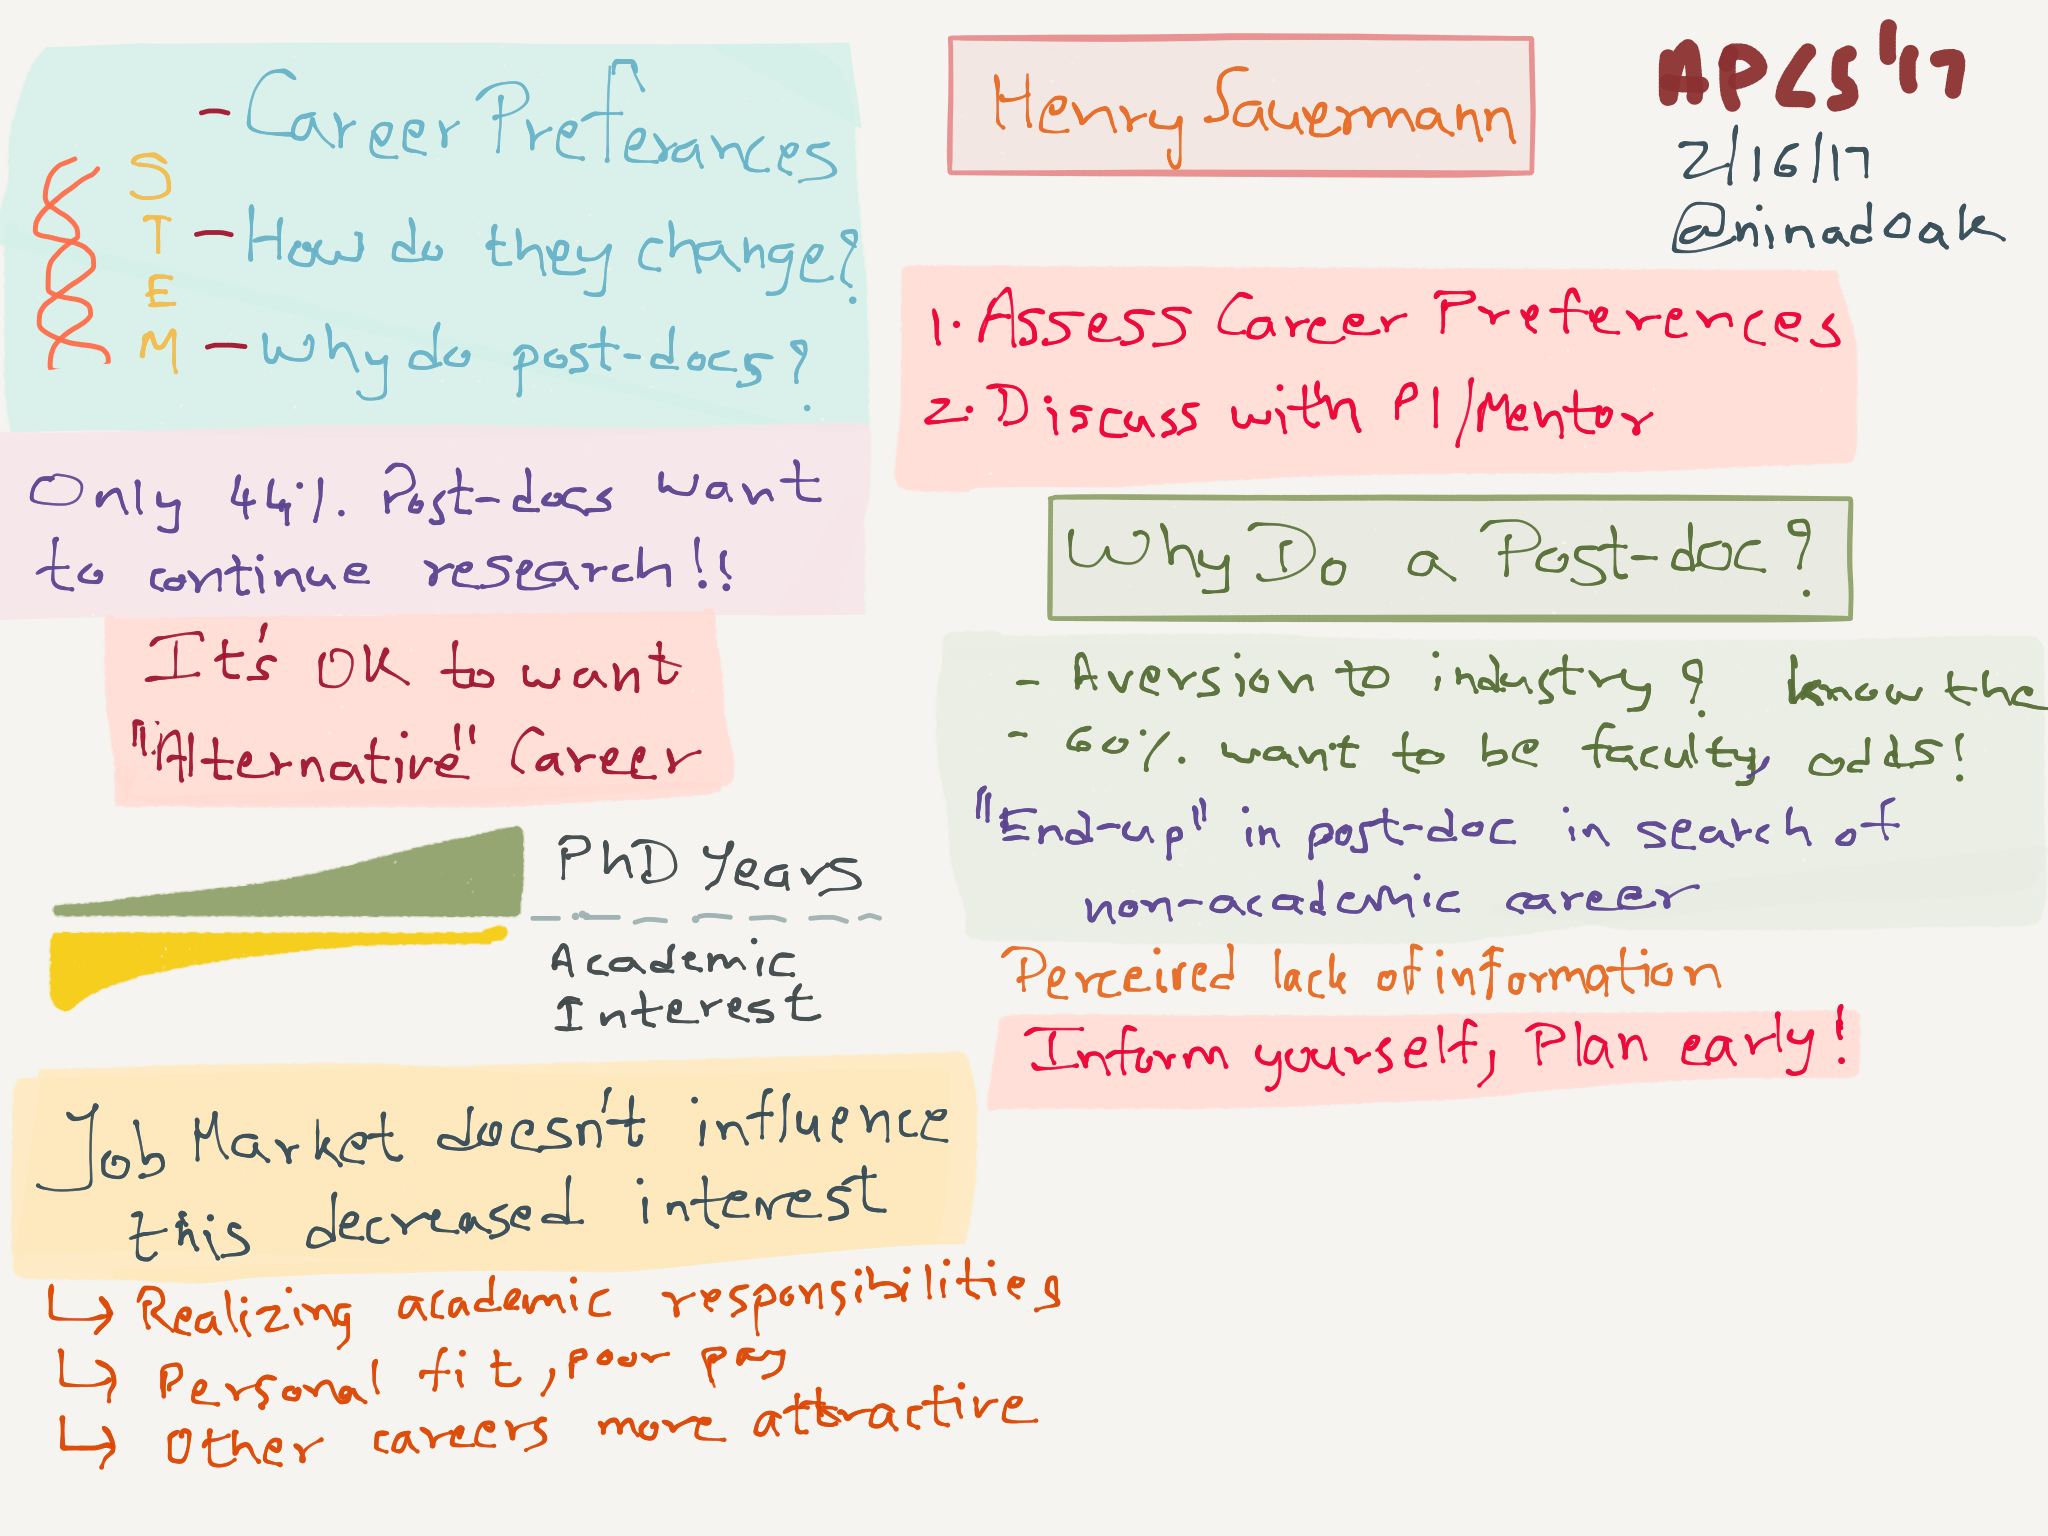 - Career Preferances
S
T
E
M
- How do they change?
- Why do post-docs?
Only 44%. Post-docs want
to continue research!!
It's OK to want
"Alternative" Career
PhD Years
Academic
Interest
Job Market doesn't influence
this decreased interest
↳ Realizing academic responsibilities
↳ Personal fit, poor pay
↳ Other careers more attractive
Henry Sauermann
APCS '17
2/16/17
@ninadoak
1. Assess Career Preferences
2. Discuss with PI/Mentor
Why Do a Post-doc?
- Aversion to industry?
- 60%. want to be faculty,
know the
odds!
"End-up" in post-doc in search of
non-academic career
Perceived lack of information
Inform yourself, Plan early!